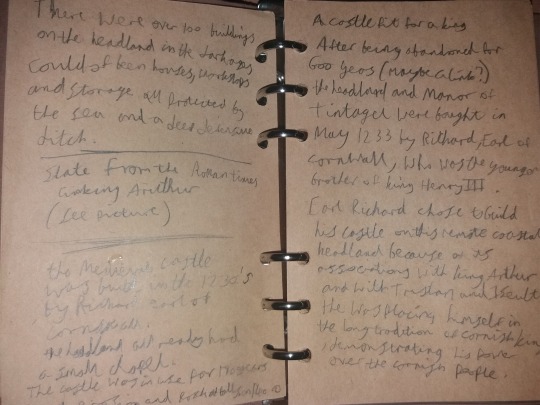 There were over 100 buildings
on the headland in the darkages
could of been houses, workshops
and storage all protected by
the sea and a deep defensive
ditch.
Slate from the Roman times
King Arthur
(See picture)
the Medieval castle
was built in the 1230's
by Richard earl of
cornwall.
the headland all ready had
a small chapel.
The castle was in use for
A castle fit for a king
After being abandoned for
600 years (Maybe a link?)
the headland and Manor of
Tintagel were bought in
May 1233 by Richard, Earl of
cornwall, who was the younger
brother of king Henry III.
Earl Richard chose to build
his castle on this remote coastal
headland because of its
associations with King Arthur
and with Tristan and Iseult
He was placing himself in
the long tradition of cornish kings
demonstrating his power
over the cornish people.